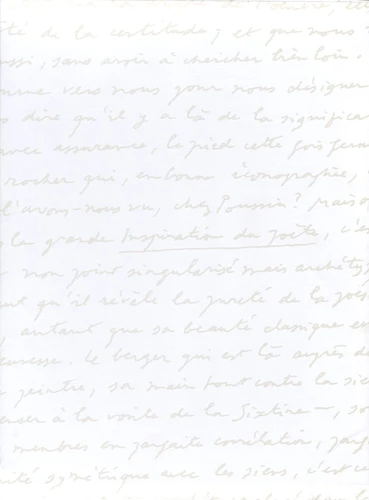 té de la certitude ; et que nous
ussi, sans avoir à chercher bien loin.
me vers nous pour nous désigner
dire qu'il y a là de la significa
avec assurance, le pied cette fois ferm
rocher qui, en bonne iconographie,
l'avons-nous vu, chez Poussin? Mais
la grande Inspiration du poète, c'es
non point singularisé mais archéty
ut qu'il révèle la pureté de la poés
autant que sa beauté classique en
eunesse. Le berger qui est là auprès de
peintre, sa main tout contre la sie
enser à la voûte de la Sixtine –, so
membres en parfaite corrélation, parf
ité symétrique avec les siens, c'est ce